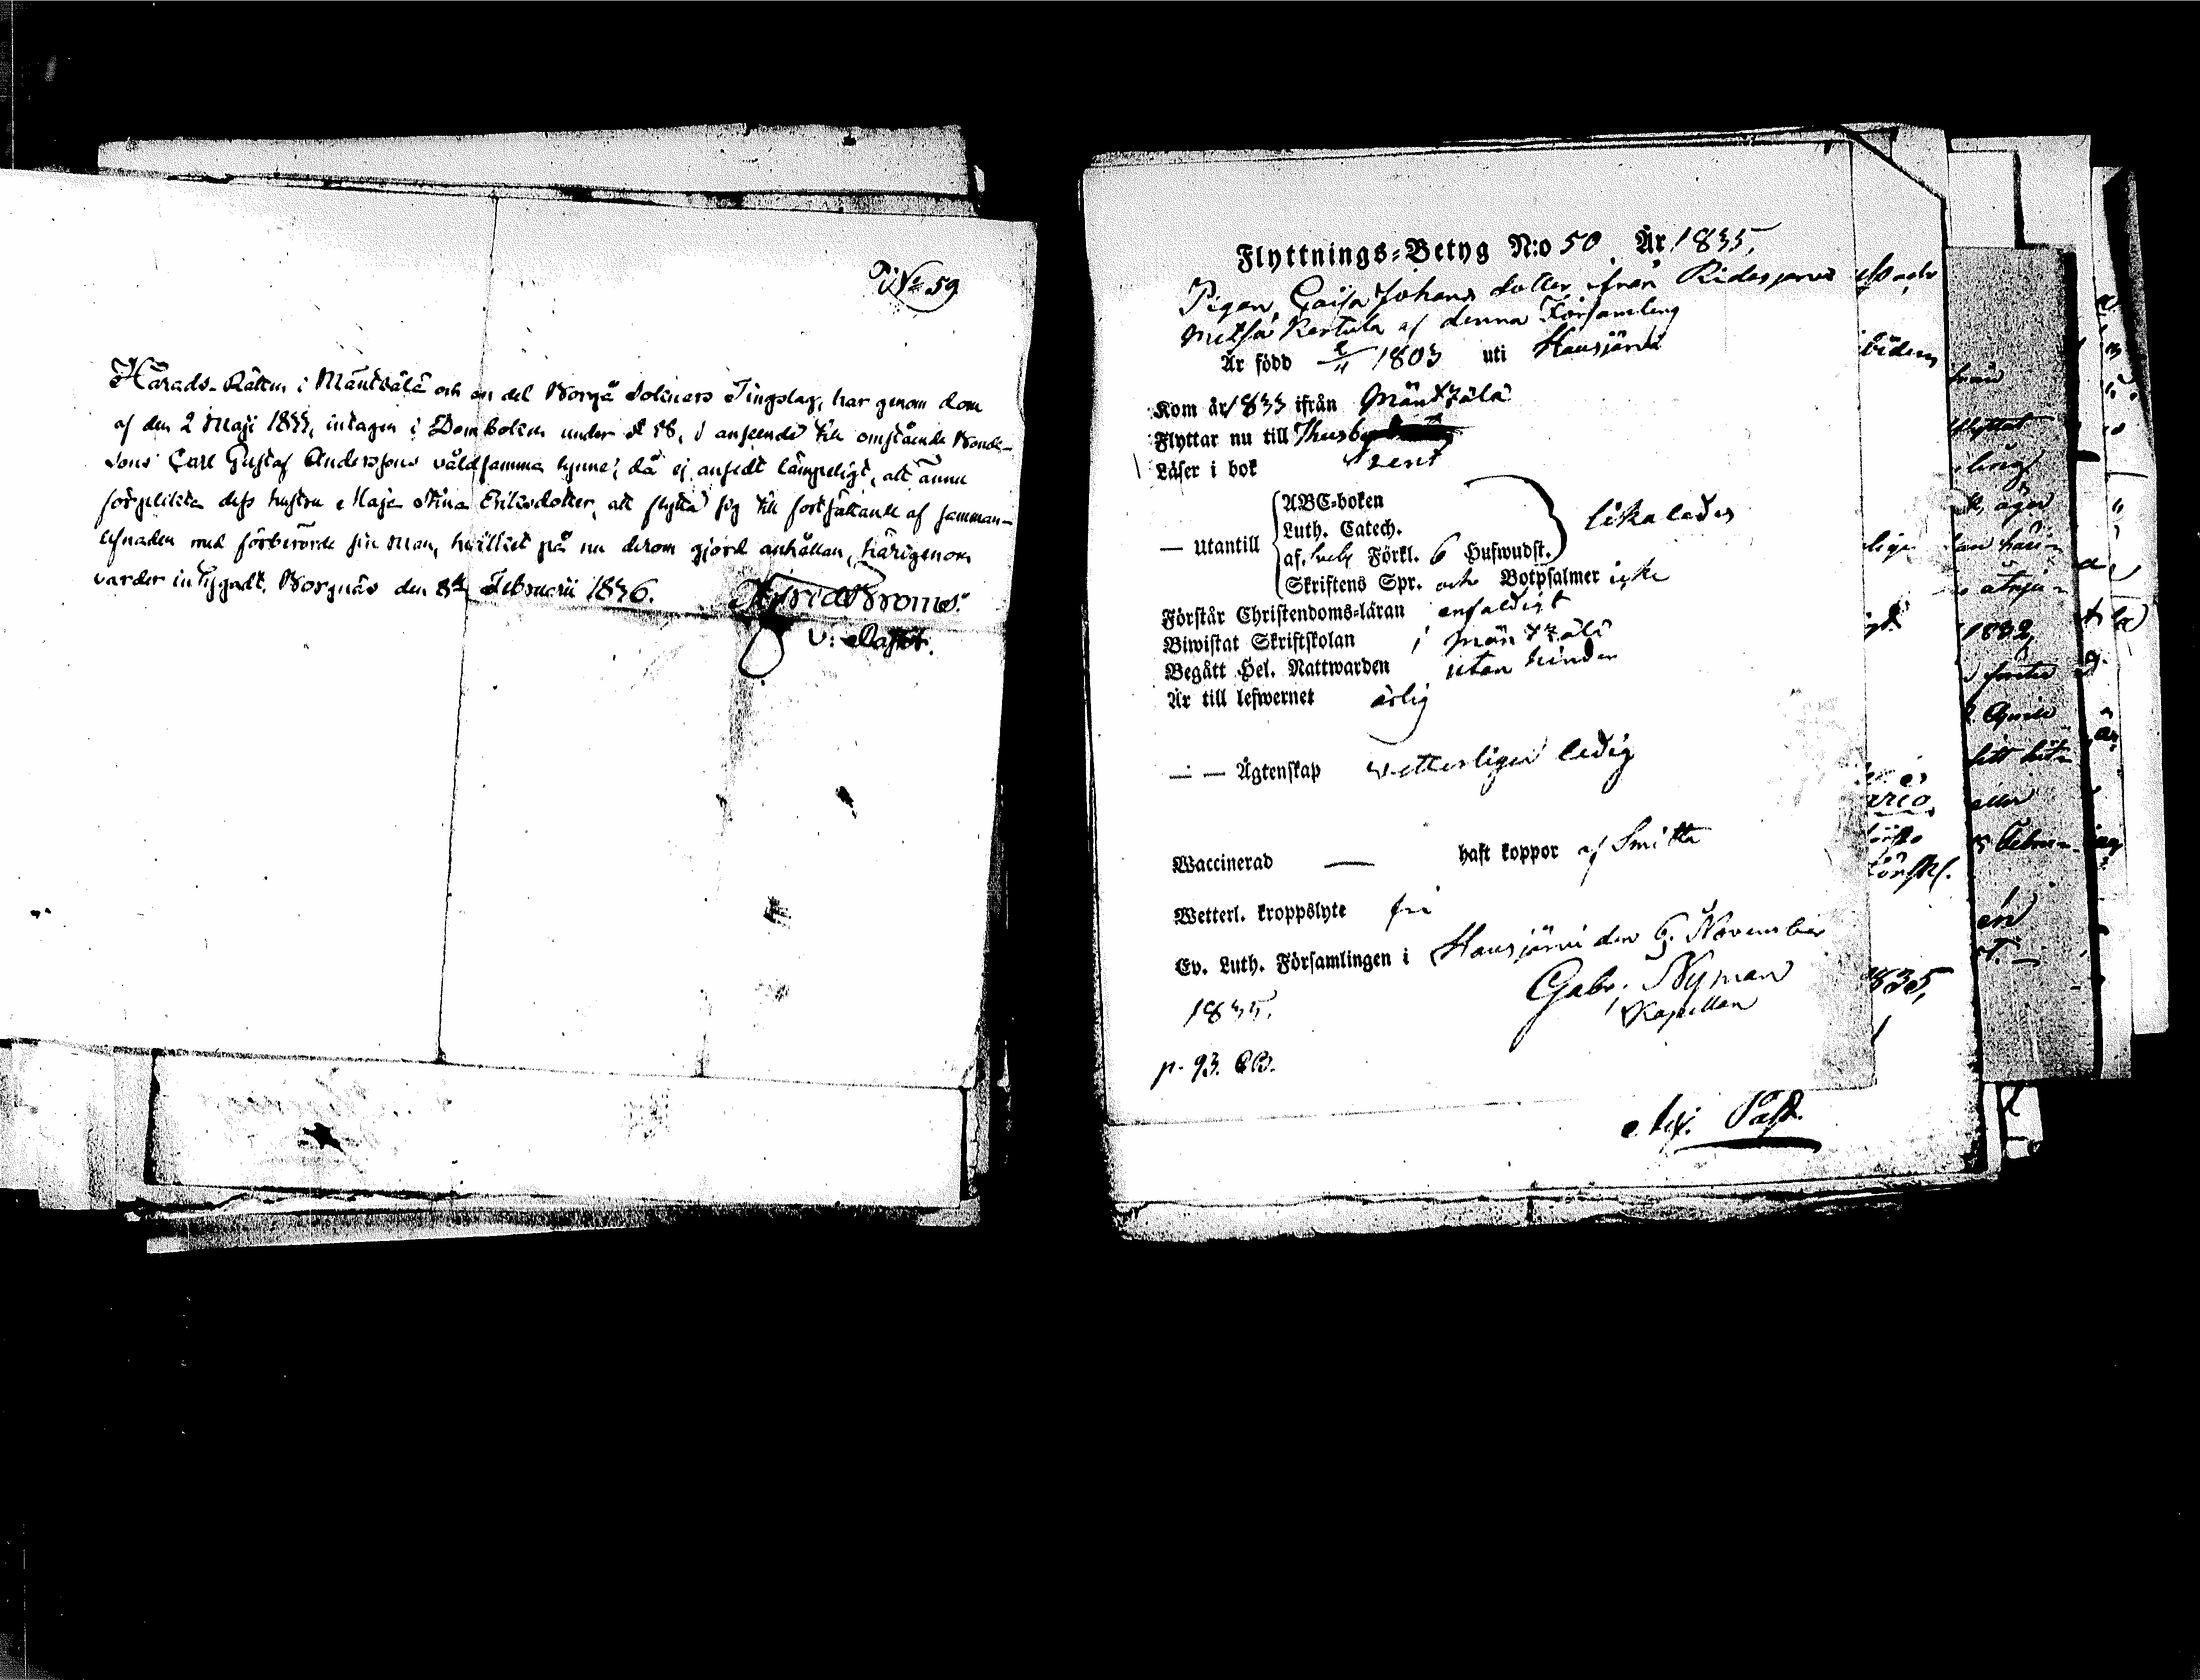 № 59
Härads-Rätten i Mäntsälä och en del Borgå Sockners Tingslag, har genom dom
af den 2 Maji 1835, intagen i Domboken under § 58, i anseende till omstående Bonde-
sons Carl Gustaf Anderssons våldsamma lynne, då ej ansedt lämpeligt, att ännu
förplikta dess hustru Maja Stina Eriksdotter, att flytta sig till fortsättande af samman-
lefnaden med förberörde sin man, hvilket på nu derom gjord anhållan, härigenom
varder intygadt. Borgnäs den 8de Februarii 1836.
Flyttnings-Betyg N:o 50. År 1835,
Pigan Caisa Johans dotter ifrån Ridasjerwi
Metsä Kertula af denna Församling
Är född 2/11 1803 uti Hausjärvi
Kom år 1833 ifrån Mäntzälä
Flyttar nu till Thusby
Läser i bok rent
— Utantill
ABC-boken
Luth. Catech.
af. Sveb. Förkl. 6 Hufwudst.
likaledes
Skriftens Spr. och Botpsalmer icke
Förstår Christendoms-läran enfaldigt
Biwistat Skriftskolan i Mäntzälä
Begått Hel. Nattwarden utan hinder
Är till lefwernet ärlig
— — Ägtenskap vetterligen ledig
Waccinerad — haft koppor af Smitta
Wetterl. kroppslyte fri
Ev. Luth. Församlingen i Hausjärvi den 6. November
1835.
Gabr. Nyman
Kapellan
p. 93.